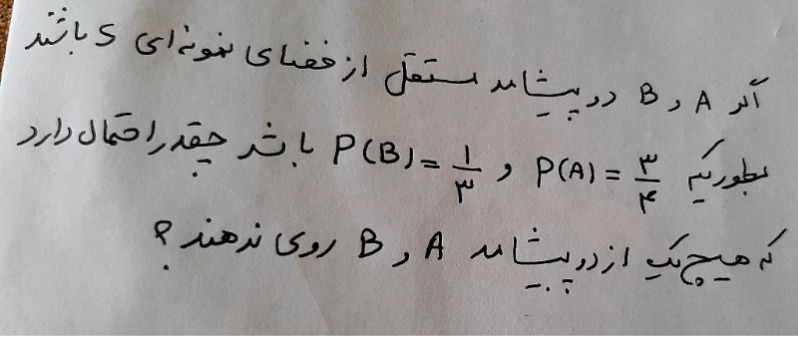 اگر A و B دو پیشامد مستقل از فضای نمونه‌ای S باشند
بطوریکه P(A) = ۳/۴ و P(B) = ۱/۳ باشد چقدر احتمال دارد
که هیچ یک از دو پیشامد A و B روی ندهند؟